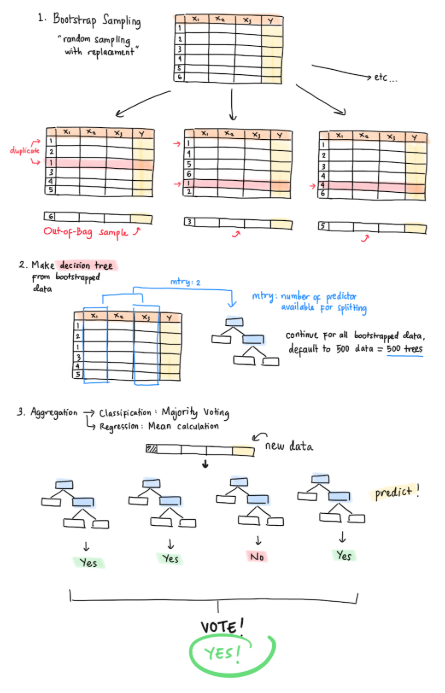 1. Bootstrap Sampling
"random sampling
with replacement"
X₁ X₂ X₃ Y
1
2
3
4
5
6
etc...
duplicate
X₁ X₂ X₃ Y
1
2
1
3
4
5
6
Out-of-Bag sample
X₁ X₂ X₃ Y
1
2
5
6
1
4
3
X₁ X₂ X₃ Y
1
2
3
4
6
5
2. Make decision tree
from bootstrapped
data
mtry: 2
mtry: number of predictor
available for splitting
X₁ X₂ X₃ Y
1
2
1
3
4
5
continue for all bootstrapped data,
default to 500 data = 500 trees
3. Aggregation → Classification: Majority Voting
↳ Regression: Mean calculation
new data
predict!
Yes Yes No Yes
VOTE!
YES!